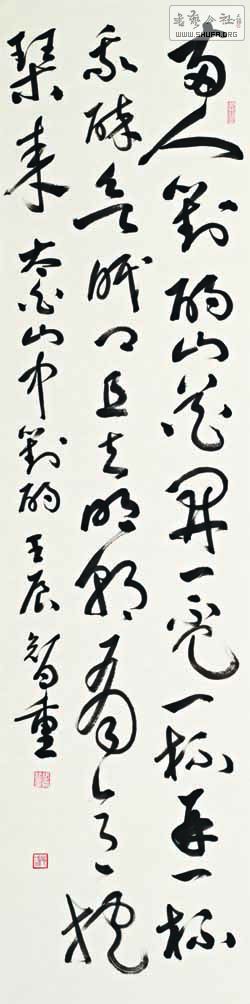 书艺公社
WWW.SHUFA.ORG
兩人對酌山花開一盃一杯再一杯
我醉欲眠卿且去明朝有意抱
琴來 太白山中對酌 壬辰 智重